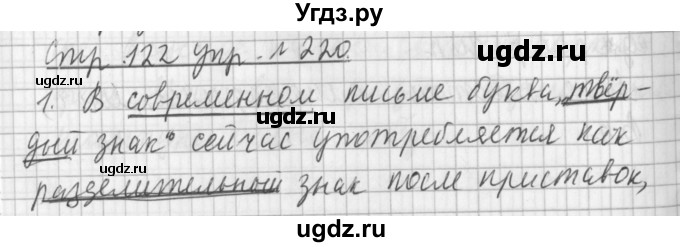 Угдз.ру
Стр. 122 упр. № 220.
ugdz.ru
ugdz.ru
1. В современном письме буква „твёр-
дый знак" сейчас употребляется как
ugdz.ru
ugdz.ru
ugdz.ru
разделительный знак после приставок,
ugdz.ru
ugdz.ru